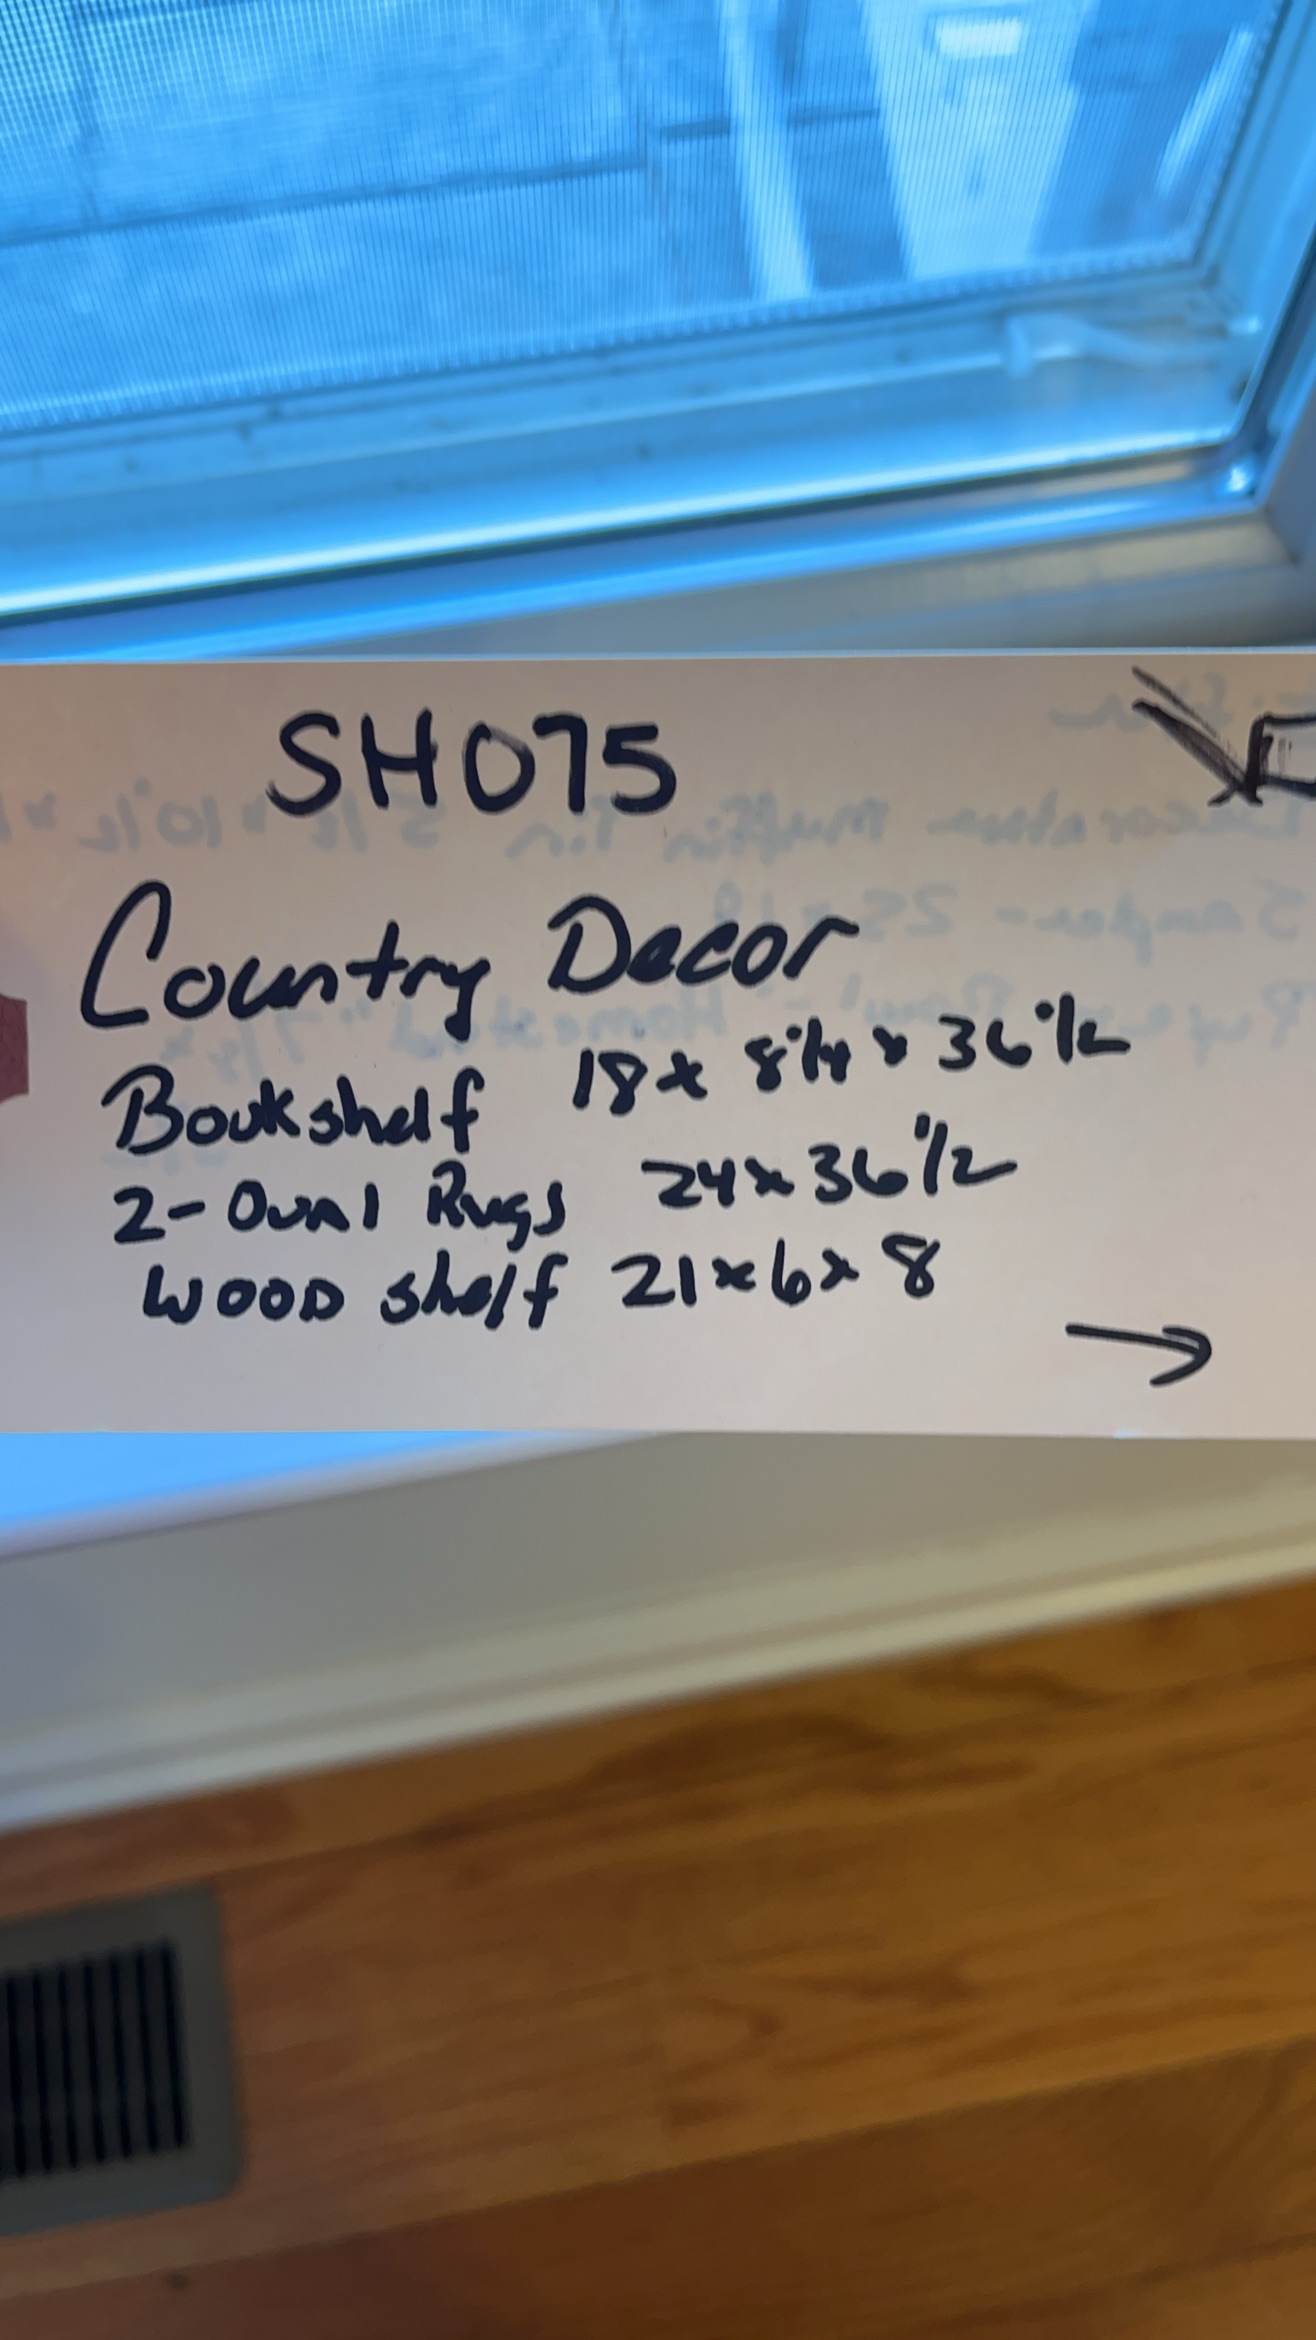 SH075
Country Decor
Bookshelf 18 x 8 1/4 x 36 1/2
2 - Oval Rugs 24 x 36 1/2
WOOD shelf 21 x 6 x 8
→